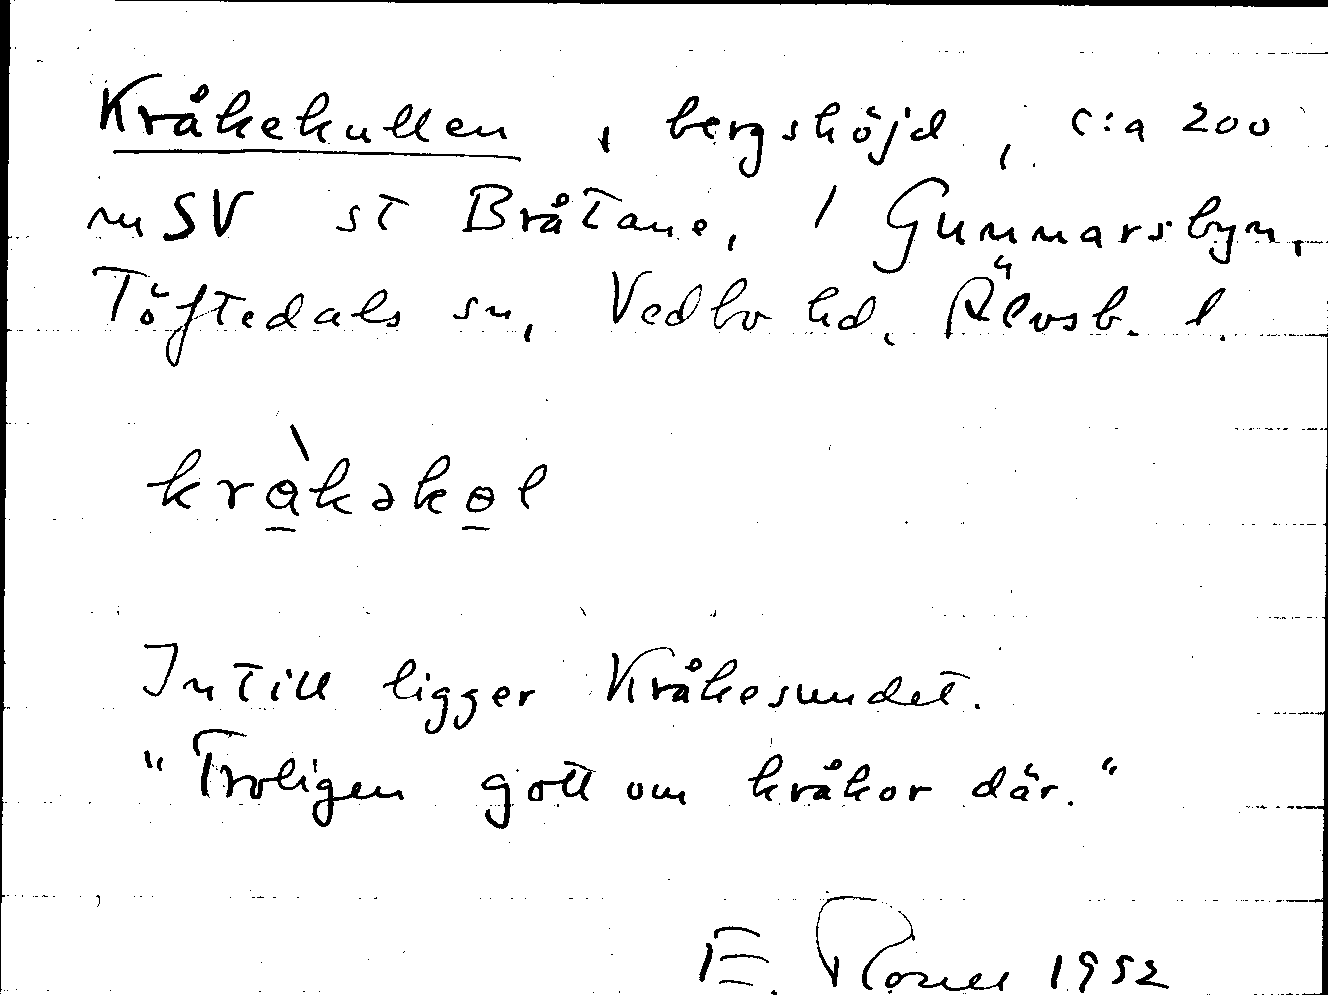 Kråkekullen, bergshöjd, c:a 200
m SV st Bråtane, 1 Gunnarsbyn,
Töftedals sn, Vedbo hd, Älvsb. l.
kràkəkel
Intill ligger Kråkesundet.
"Troligen gott om kråkor där."
E. 1952